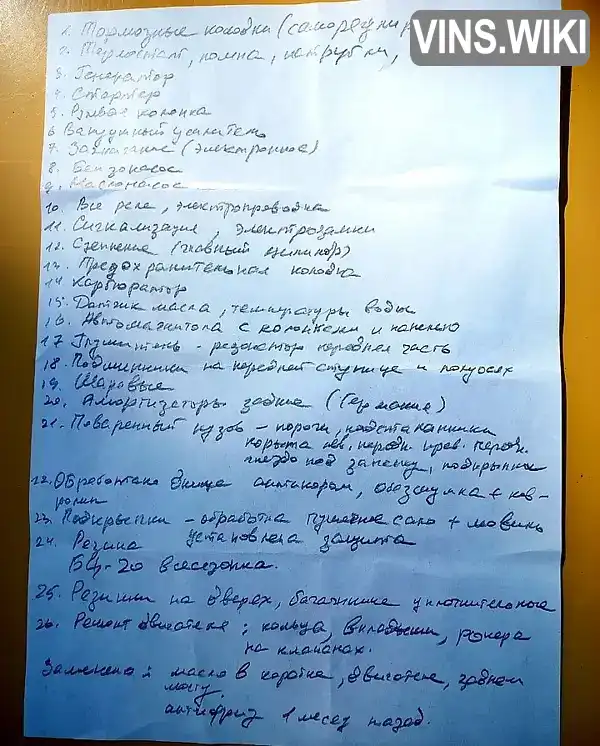 VINS.WIKI
1. Тормозные колодки (саморегулир
2. Термостат, помпа, патрубки,
3. Генератор
4. Стартер
5. Рулевая колонка
6 Вакуумный усилитель
7. Зажигание (электронное)
8. Бензонасос
9. Маслонасос
10. Все реле, электропроводка
11. Сигнализация, электрозамки
12. Сцепление (главный цилиндр)
13. Предохранительная колодка
14 Карбюратор
15. Датчик масла, температуры воды
16. Автомагнитола с колонками и панелью
17 Глушитель - резонатор передняя часть
18. Подшипники на передней ступице и полуосях
19. Шаровые
20. Амортизаторы задние (Германия)
21. Поваренный кузов - пороги, подстаканники
корыта лев. передн. прав. передн.
гнездо под запаску, подкрылки
22. Обработано днище антикором, обезшумка + ков-
ролин
23. Подкрылки - обработка пушечное сало + мовиль
установлена защита
24. Резина
БЦ-20 всесезонка.
25. Резинки на дверях, багажнике уплотнительное
26. Ремонт двигателя; кольца, вкладыши, рокера
на клапанах.
Заменено: масло в коробке, двигателе, заднем
мосту.
антифриз 1 месяц назад.